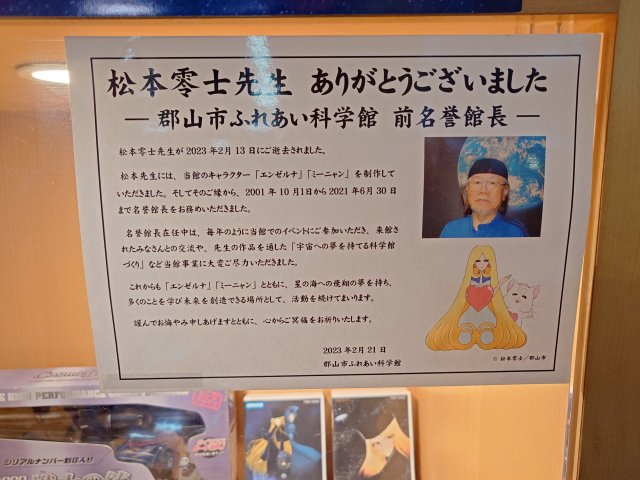 松本零士先生 ありがとうございました
― 郡山市ふれあい科学館 前名誉館長 ―
松本零士先生が2023年2月13日にご逝去されました。
松本先生には、当館のキャラクター「エンゼルナ」「ミーニャン」を制作して
いただきました。そしてそのご縁から、2001年10月1日から2021年6月30日
まで名誉館長をお務めいただきました。
名誉館長在任中は、毎年のように当館でのイベントにご参加いただき、来館
されたみなさんとの交流や、先生の作品を通した「宇宙への夢を持てる科学館
づくり」など当館事業に大変ご尽力いただきました。
これからも「エンゼルナ」「ミーニャン」とともに、星の海への飛翔の夢を持ち、
多くのことを学び未来を創造できる場所として、活動を続けてまいります。
謹んでお悔やみ申しあげますとともに、心からご冥福をお祈りいたします。
2023年2月21日
郡山市ふれあい科学館
© 松本零士／郡山市
HIGH PERFORMANCE
シリアルナンバー刻印入り